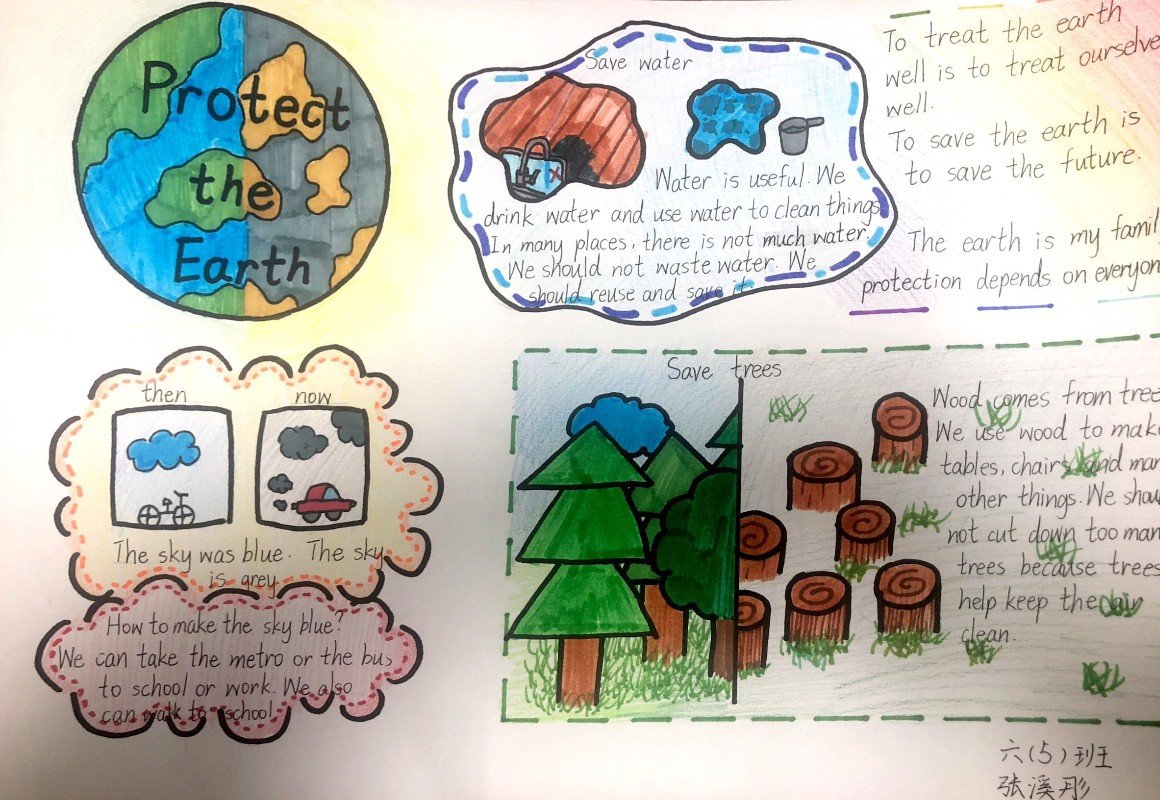 Protect
the
Earth
Save water
Water is useful. We
drink water and use water to clean things
In many places, there is not much water.
We should not waste water. We
should reuse and save it
To treat the earth
well is to treat ourselve
well.
To save the earth is
to save the future.
The earth is my famil
protection depends on everyon
then
now
The sky was blue. The sky
is grey
How to make the sky blue?
We can take the metro or the bus
to school or work. We also
can walk to school
Save trees
Wood comes from tree
We use wood to mak
tables, chairs, and man
other things. We shou
not cut down too man
trees because trees
help keep the air
clean.
六(5)班
张溪彤